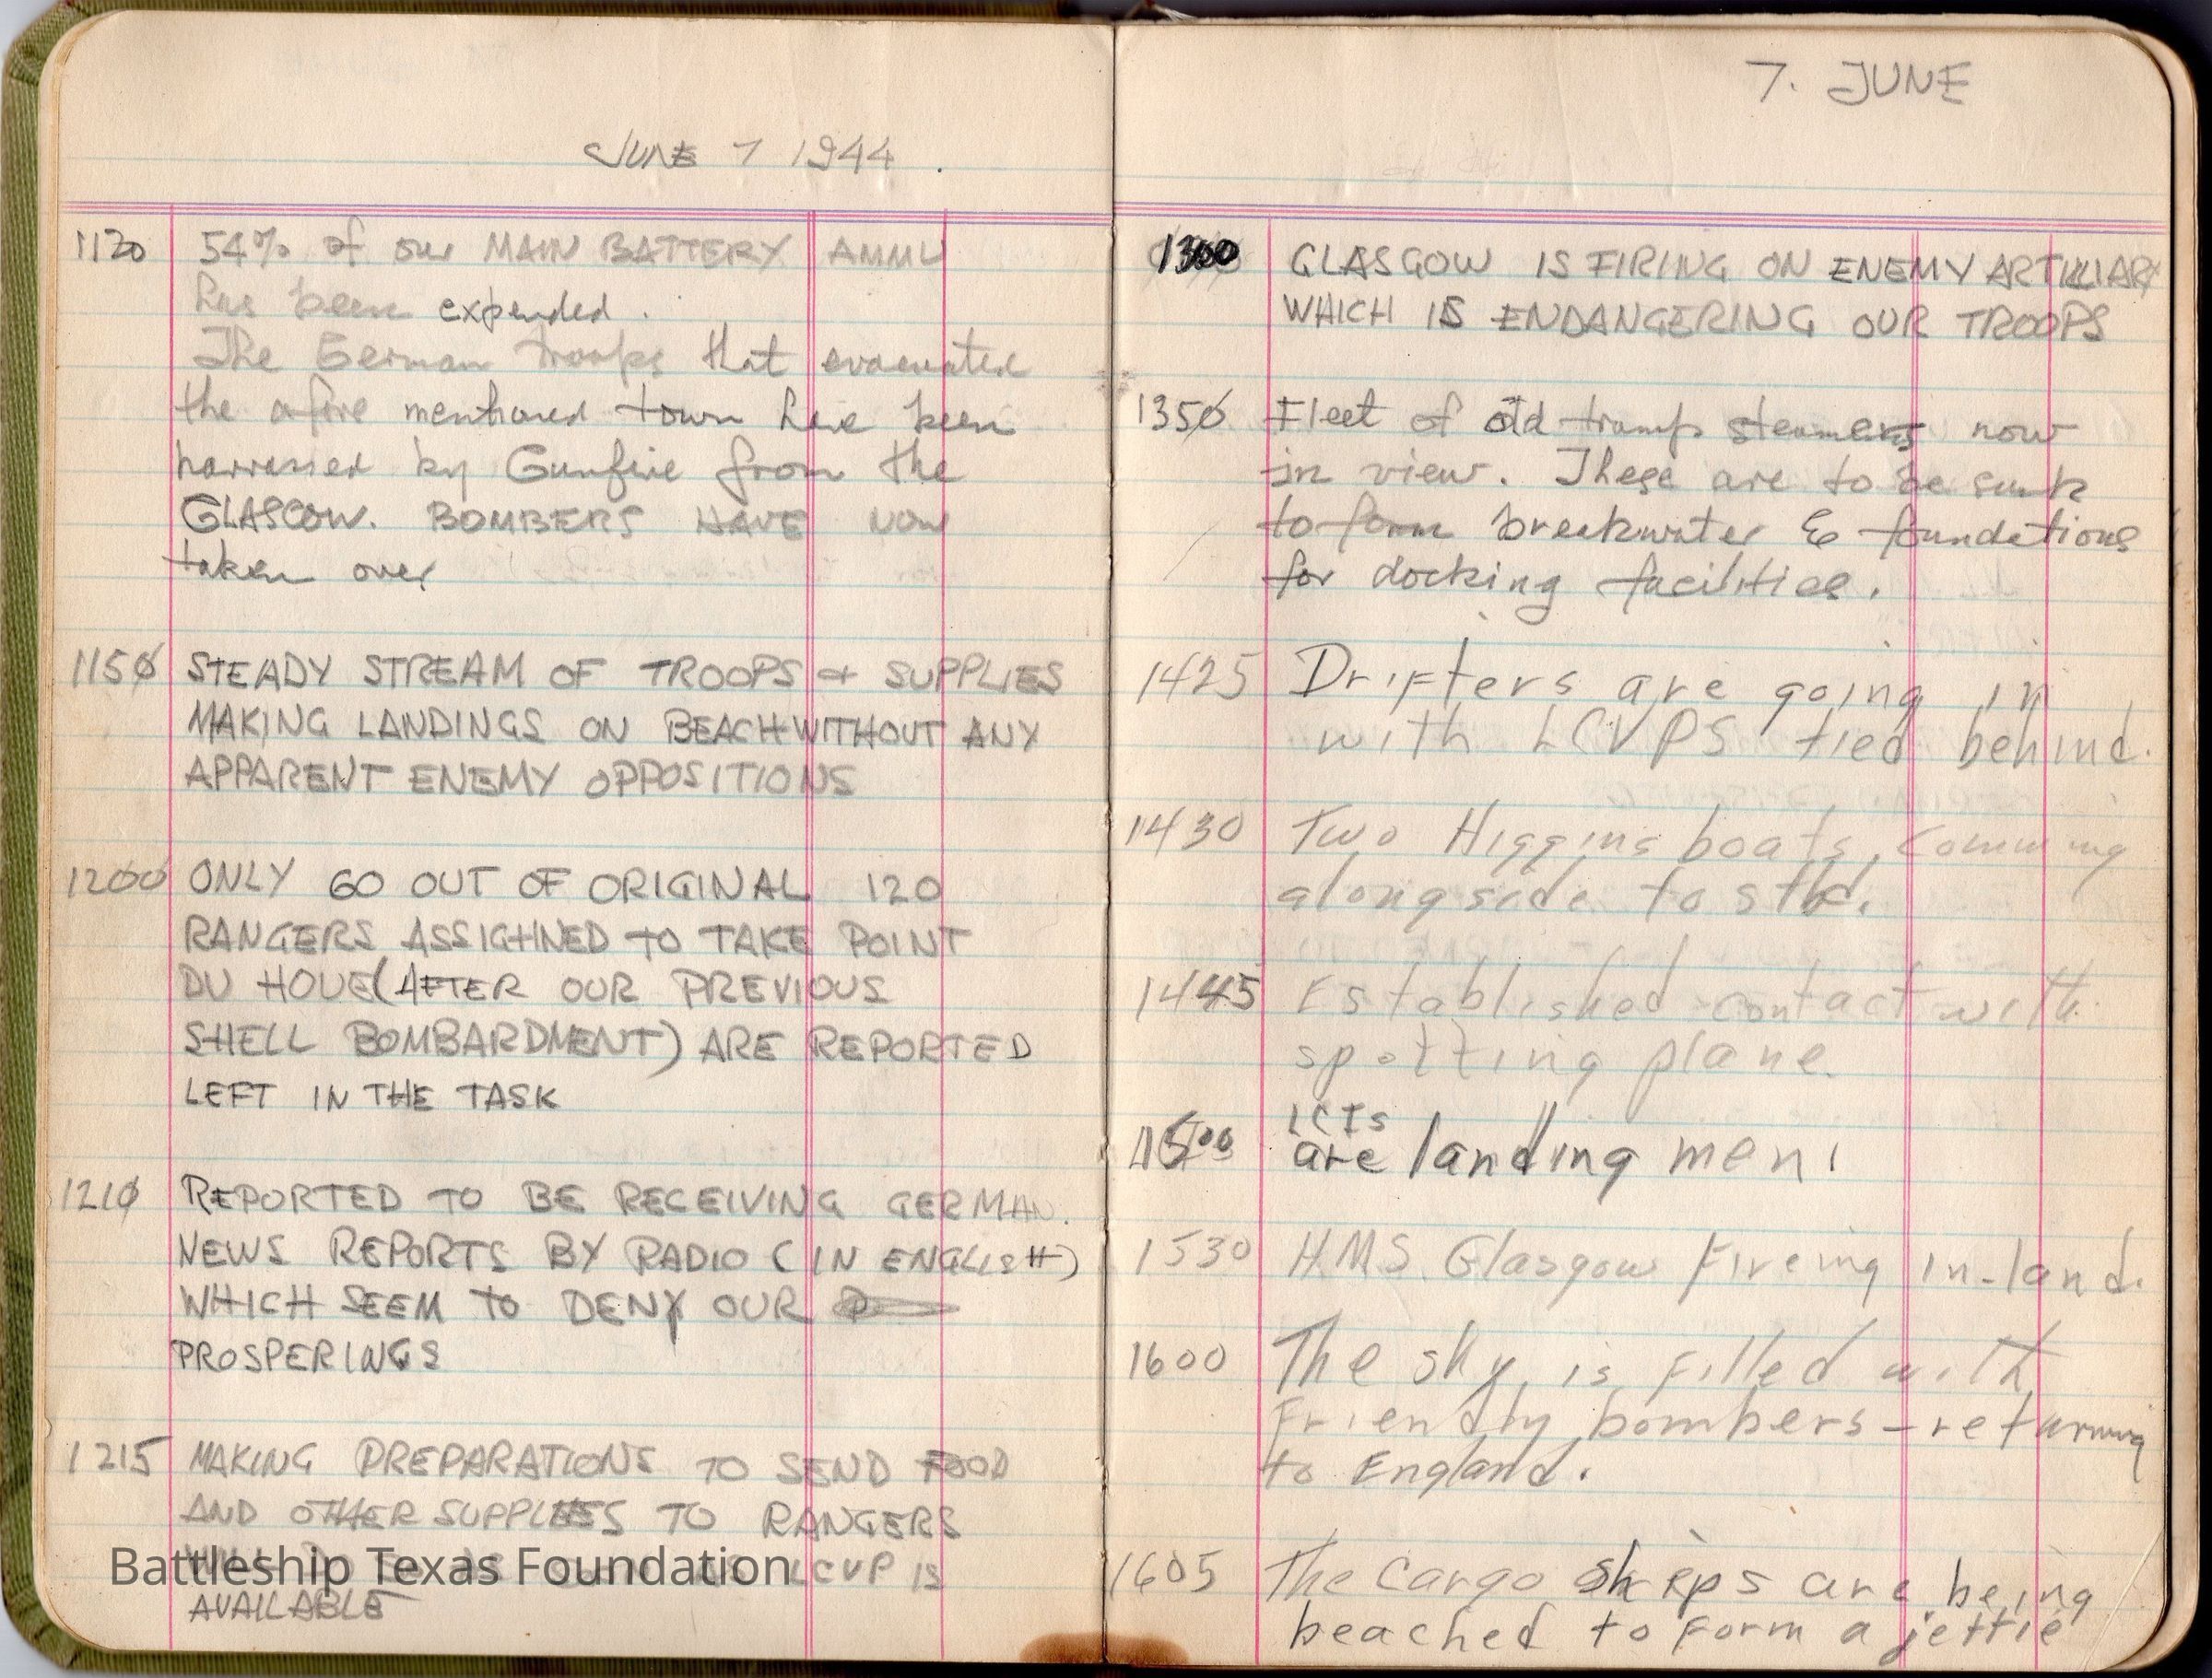 JUNE 7 1944.
1120 54% of our MAIN BATTERY AMMU
has been expended.
The German troops that evacuated
the afore mentioned town have been
harrassed by Gunfire from the
GLASGOW. BOMBERS HAVE NOW
taken over
1150 STEADY STREAM OF TROOPS & SUPPLIES
MAKING LANDINGS ON BEACH WITHOUT ANY
APPARENT ENEMY OPPOSITIONS
1200 ONLY 60 OUT OF ORIGINAL 120
RANGERS ASSIGHNED TO TAKE POINT
DU HOUE (AFTER OUR PREVIOUS
SHELL BOMBARDMENT) ARE REPORTED
LEFT IN THE TASK
1210 REPORTED TO BE RECEIVING GERMAN.
NEWS REPORTS BY RADIO (IN ENGLISH)
WHICH SEEM TO DENY OUR
PROSPERINGS
1215 MAKING PREPARATIONS TO SEND FOOD
AND OTHER SUPPLIES TO RANGERS
LCVP IS
AVAILABLE
Battleship Texas Foundation
7. JUNE
1300 GLASGOW IS FIRING ON ENEMY ARTILLIARY
WHICH IS ENDANGERING OUR TROOPS
1350 Fleet of old tramp steamers now
in view. These are to be sunk
to form breakwater & foundations
for docking facilities.
1425 Drifters are going in
with LCVPS tied behind.
1430 Two Higgins boats comming
alongside to stbd.
1445 Established contact with
spotting plane.
LCIs
1500 are landing men.
1530 H.M.S. Glasgow Fireing in-land.
1600 The sky is filled with
Friendly bombers - returning
to England.
1605 The Cargo ships are being
beached to form a jettie